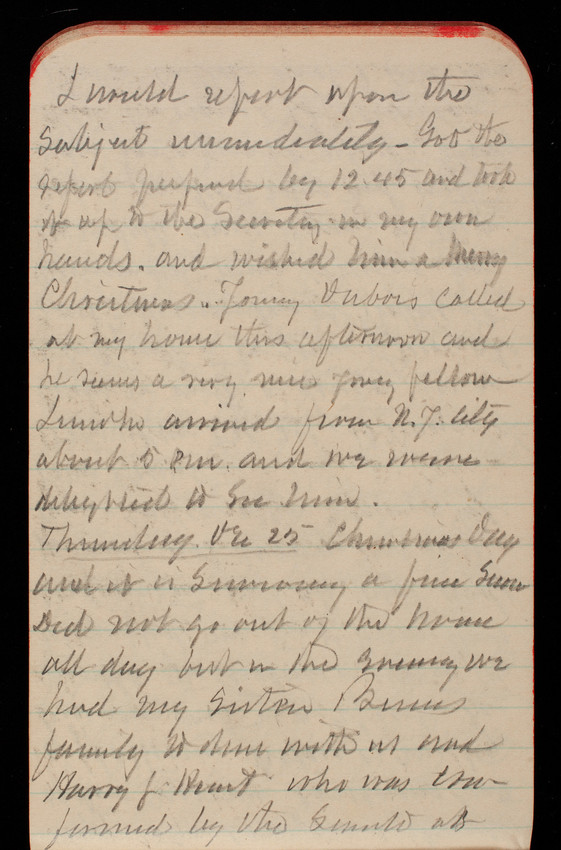 I would report upon the
Subject immediately - Got the
report prepared by 12.45 and took
it up to the Secretary in my own
hands. and wished him a Merry
Christmas. Young Dubois called
at my home this afternoon and
he seems a very nice young fellow
arrived from N.Y. City
about 5 P.M. and we were
delighted to see him.
Thursday. Dec 25 Christmas Day
and it is Snowing a fine Snow
Did not go out of the house
all day but in the Evening we
had my Sister
family to dine with us and
Harry J. who was con-
firmed by the Senate as